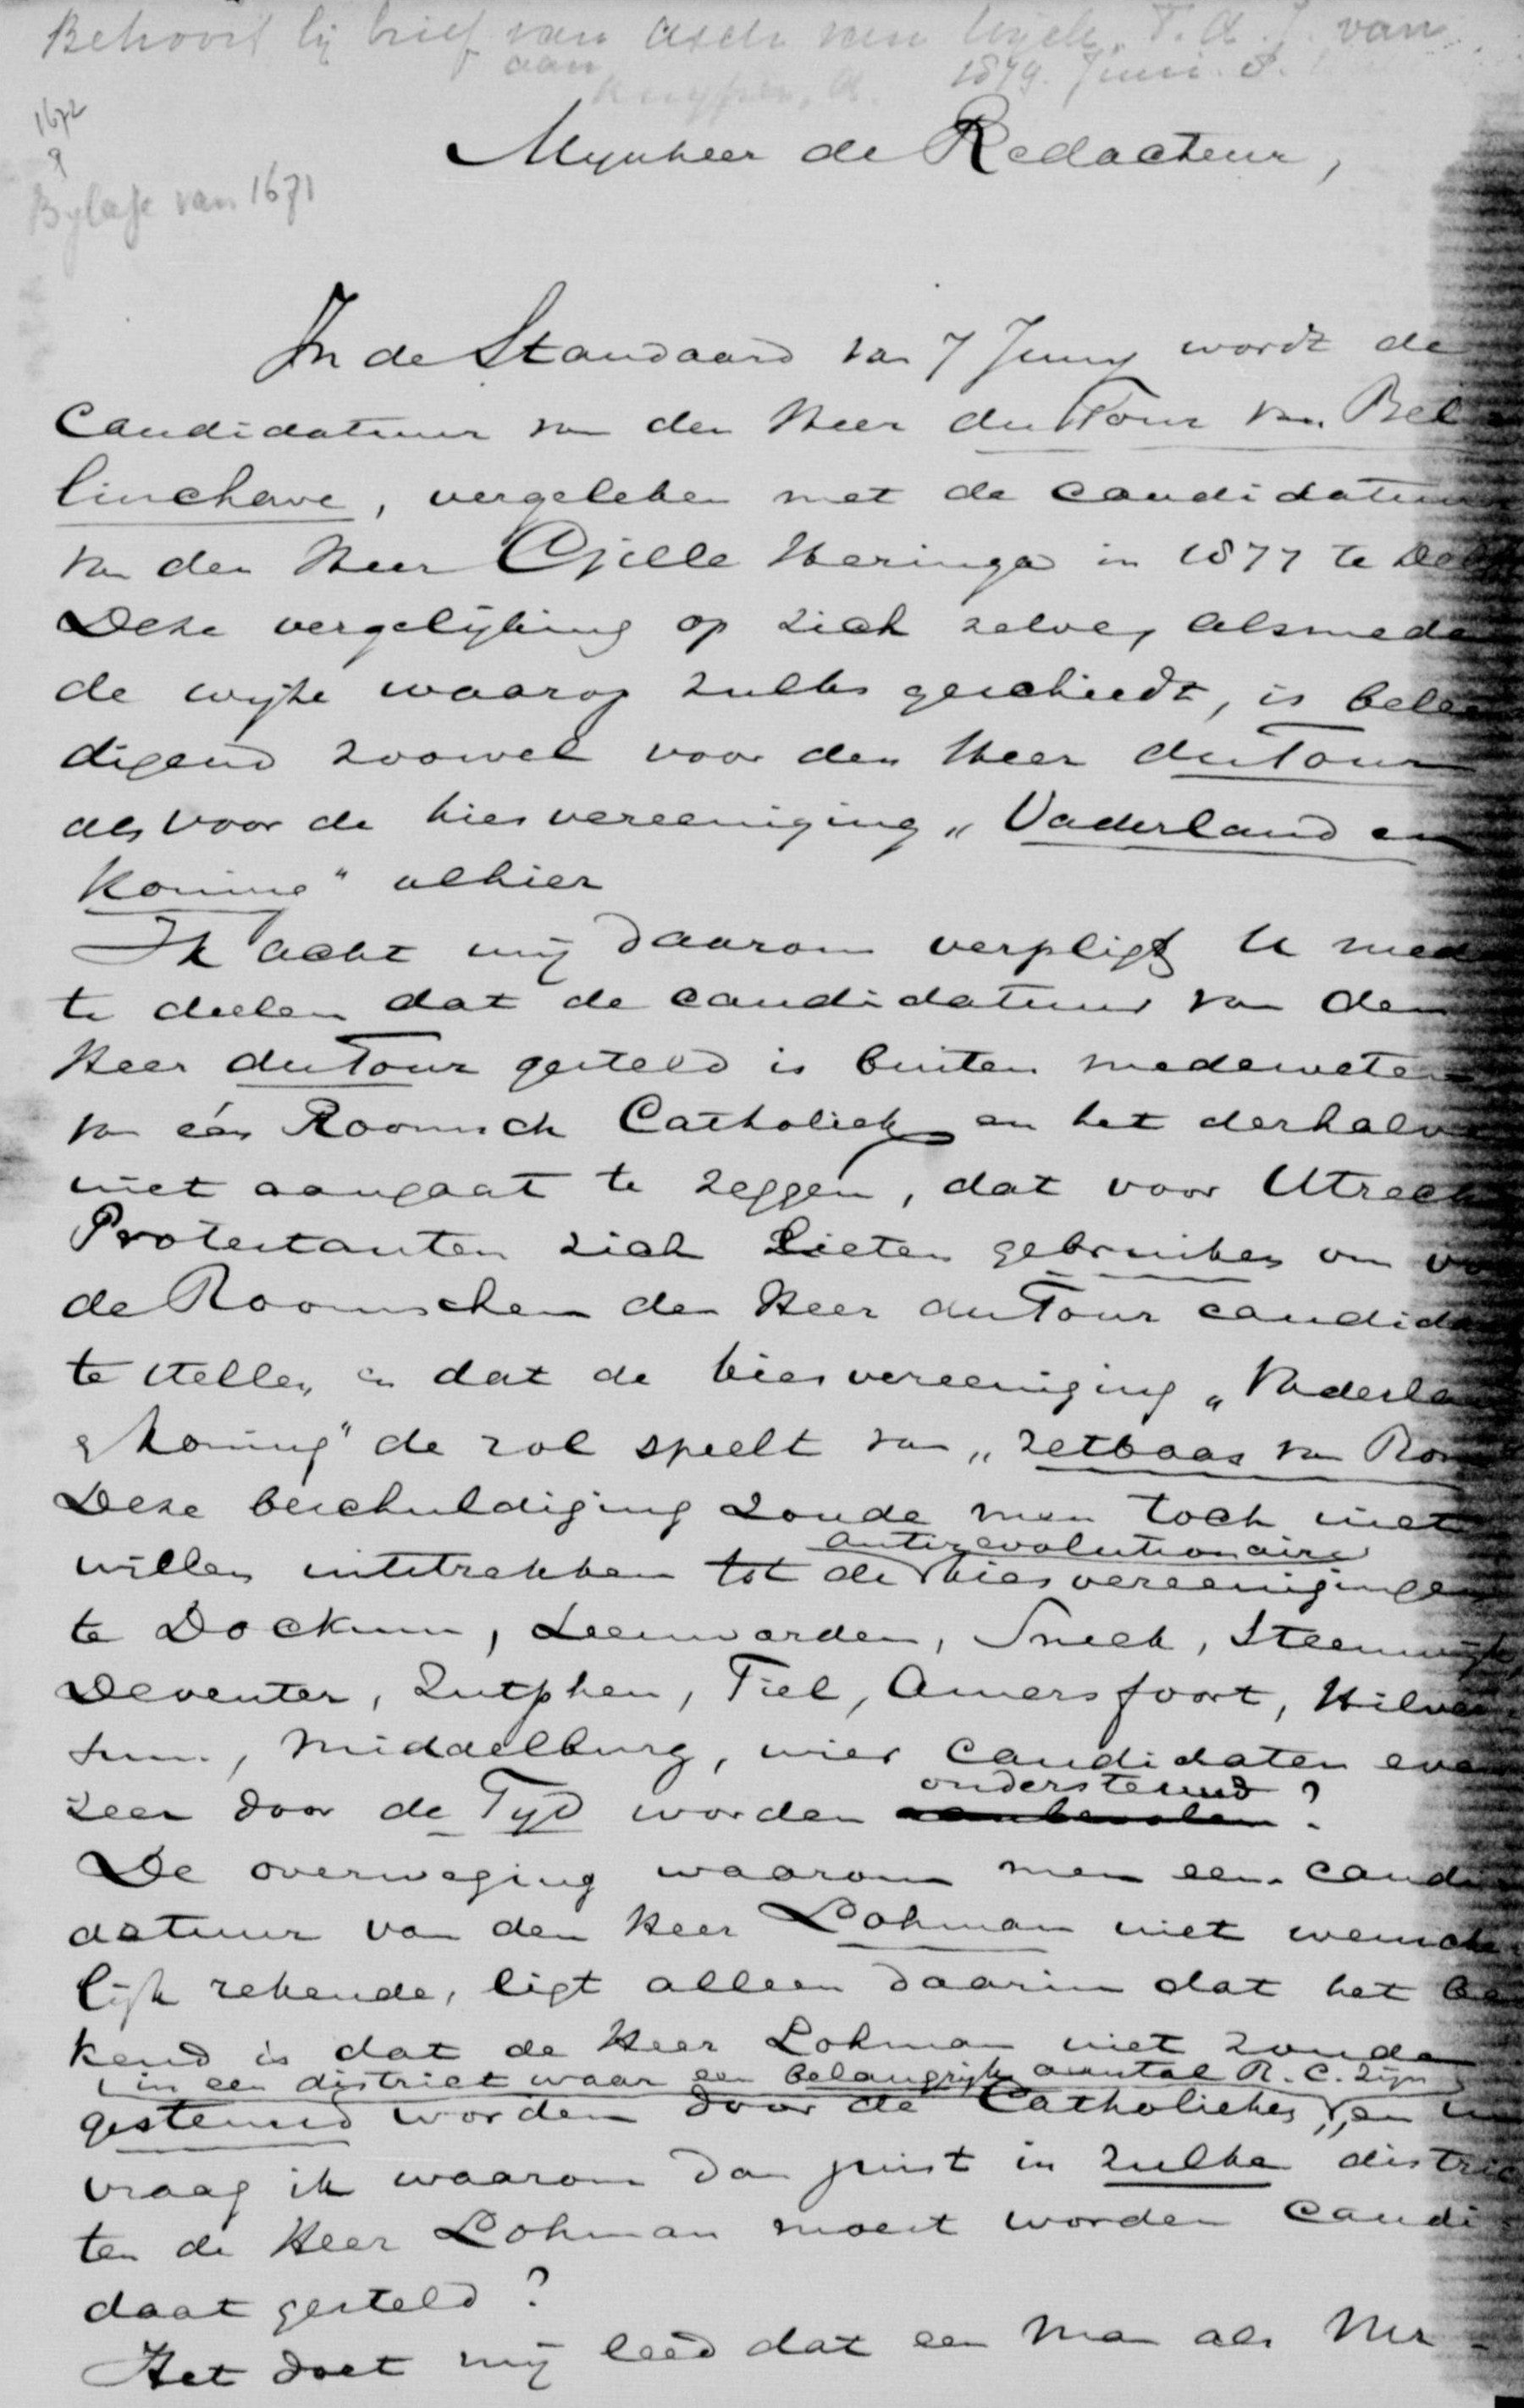 Behoort bij brief van Asch van Wijck, T. A. J. van
aan Kuyper, A. 1879. Juni. 8.
1672
9
Bylage van 1671
Mynheer de Redacteur,
In de Standaard van 7 Juny wordt de
Candidatuur van den Heer du Tour van Bel
linchave, vergeleken met de candidatuur
van den Heer Cjille Heringa in 1877 te
Deze vergelyking op zich zelve, alsmede
de wyze waarop zulks geschiedt, is belee
digend zoowel voor den Heer du Tour
als voor de kiesvereeniging „Vaderland en
Koning" alhier
Ik acht mij daarom verpligt U mede
te deelen dat de candidatuur van den
Heer du Tour gesteld is buiten medeweten
van één Roomsch Catholiek en het derhalve
niet aangaat te zeggen, dat voor Utrecht
Protestanten zich lieten gebruiken om
de Roomschen den Heer du Tour candidaat
te stellen, en dat de kiesvereeniging „Vaderland
& Koning" de rol speelt van „zetbaas van Rome
Deze beschuldiging zoude men toch niet
antirevolutionaire
willen uitstrekken tot de kiesvereenigingen
te Dockum, Leeuwarden, Sneek, Steenwijk,
Deventer, Zutphen, Tiel, Amersfoort, Hilver
sum, Middelburg, wier candidaten even
ondersteund
zeer door de Tyd worden aanbevolen?
De overweging waarom men een candi
datuur van den Heer Lohman niet wensche
lijk rekende, ligt alleen daarin dat het be
kend is dat de Heer Lohman niet zoude
in een district waar een belangrijk aantal R. C. zijn
gesteund worden door de Catholieken, en nu
vraag ik waarom dan juist in zulke distric
ten de Heer Lohman moest worden candi
daat gesteld?
Het doet mij leed dat een man als Mr